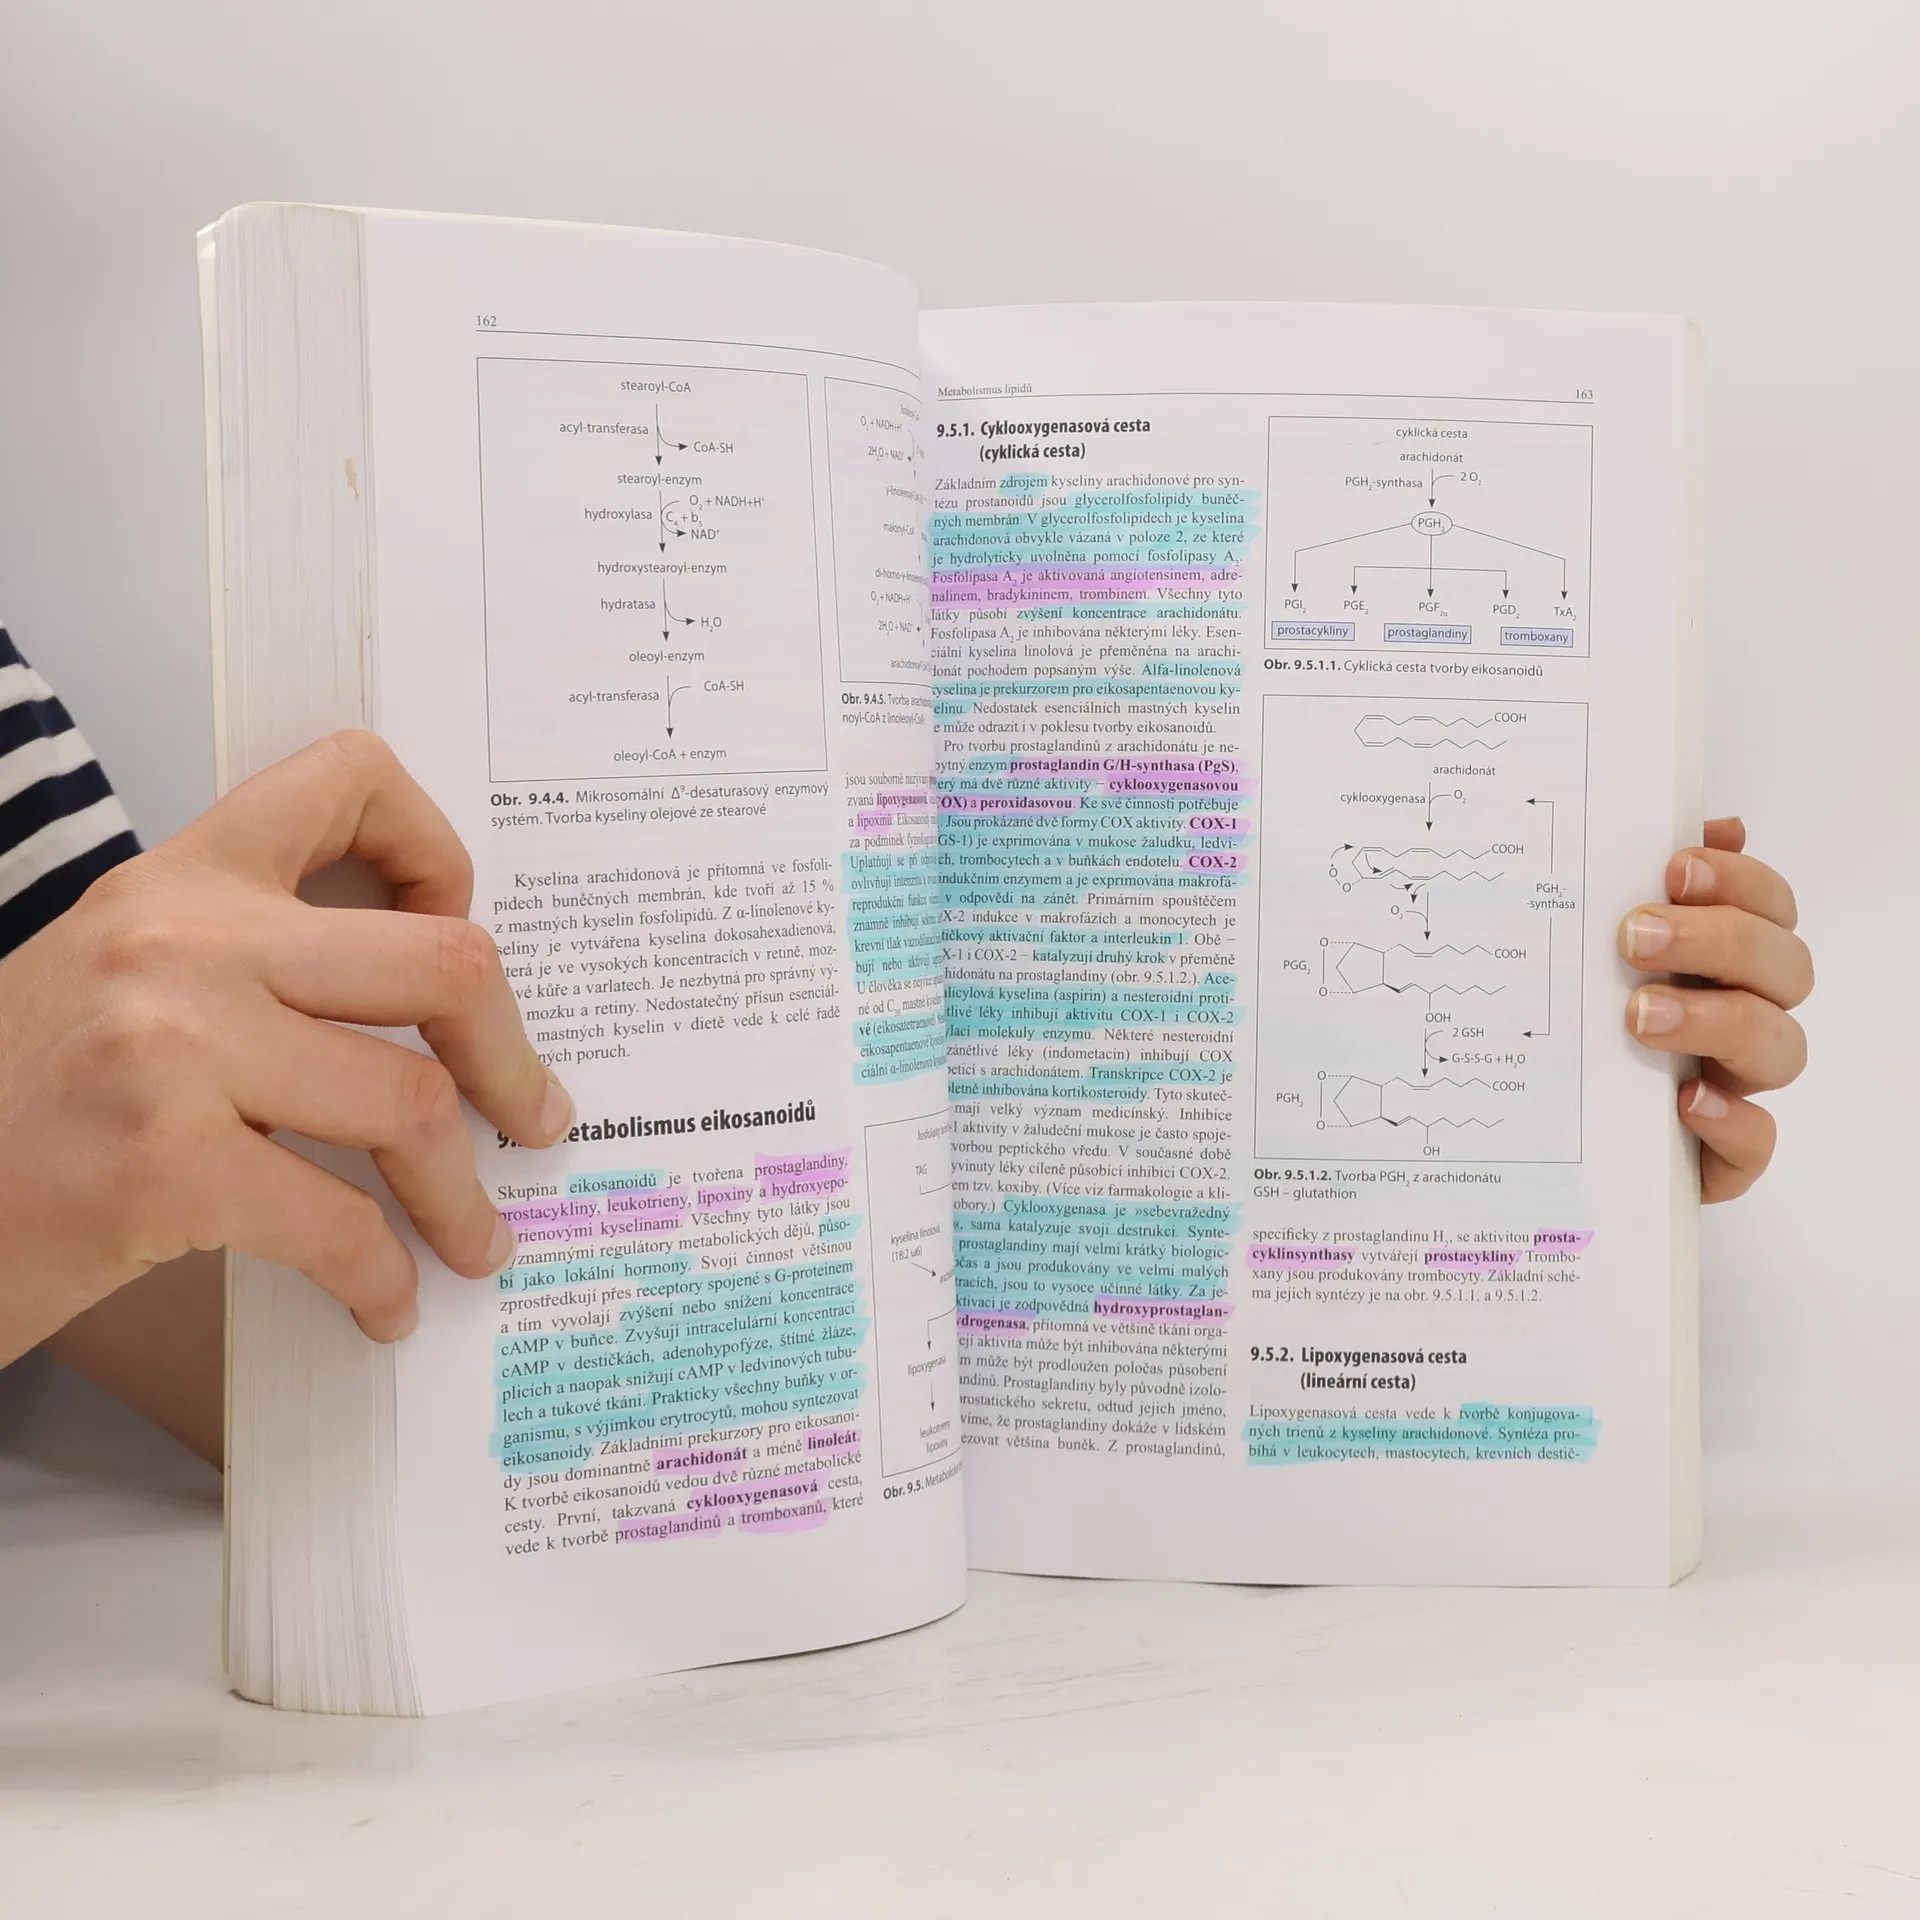 162
stearoyl-CoA
acyl-transferasa
CoA-SH
stearoyl-enzym
O₂ + NADH+H⁺
hydroxylasa
NAD⁺
hydroxystearoyl-enzym
hydratasa
H₂O
oleoyl-enzym
acyl-transferasa
CoA-SH
oleoyl-CoA + enzym
Obr. 9.4.4. Mikrosomální Δ⁹-desaturasový enzymový
systém. Tvorba kyseliny olejové ze stearové
Kyselina arachidonová je přítomná ve fosfoli-
pidech buněčných membrán, kde tvoří až 15 %
z mastných kyselin fosfolipidů. Z α-linolenové ky-
seliny je vytvářena kyselina dokosahexadienová,
terá je ve vysokých koncentracích v retině, moz-
vé kůře a varlatech. Je nezbytná pro správný vý-
mozku a retiny. Nedostatečný přísun esenciál-
mastných kyselin v dietě vede k celé řadě
ných poruch.
etabolismus eikosanoidů
Skupina eikosanoidů je tvořena prostaglandiny,
prostacykliny, leukotrieny, lipoxiny a hydroxyepo-
rienovými kyselinami. Všechny tyto látky jsou
významnými regulátory metabolických dějů, půso-
bí jako lokální hormony. Svoji činnost většinou
zprostředkují přes receptory spojené s G-proteinem
a tím vyvolají zvýšení nebo snížení koncentrace
cAMP v buňce. Zvyšují intracelulární koncentraci
cAMP v destičkách, adenohypofýze, štítné žláze,
plicích a naopak snižují cAMP v ledvinových tubu-
lech a tukové tkáni. Prakticky všechny buňky v or-
ganismu, s výjimkou erytrocytů, mohou syntezovat
eikosanoidy. Základními prekurzory pro eikosanoi-
dy jsou dominantně arachidonát a méně linoleát.
K tvorbě eikosanoidů vedou dvě různé metabolické
cesty. První, takzvaná cyklooxygenasová cesta,
vede k tvorbě prostaglandinů a tromboxanů, které
O₂ + NADH+H⁺
2H₂O + NAD⁺
malonyl-CoA
O₂ + NADH+H⁺
2H₂O + NAD⁺
Obr. 9.4.5. Tvorba
noyl-CoA z linoleoyl-CoA
jsou souborně
zvaná lipoxygenasová
a lipoxinů. Eikosanoidy
za podmínek
Uplatňují se při
ovlivňují intenzitu
reprodukční funkce
znamně inhibují
krevní tlak
bují nebo aktivují
U člověka se nejvíce
né od C₂₀ mastné
vé (eikosatetraenové)
eikosapentaenové
ciální α-linolenová
TAG
kyselina linolová
(18:2 ω6)
lipoxygenasa
leukotrieny
lipoxiny
Obr. 9.5. Metabolické
Metabolismus lipidů
163
9.5.1. Cyklooxygenasová cesta
(cyklická cesta)
Základním zdrojem kyseliny arachidonové pro syn-
tézu prostanoidů jsou glycerolfosfolipidy buněč-
ných membrán. V glycerolfosfolipidech je kyselina
arachidonová obvykle vázaná v poloze 2, ze které
je hydrolyticky uvolněna pomocí fosfolipasy A₂.
Fosfolipasa A₂ je aktivovaná angiotensinem, adre-
nalinem, bradykininem, trombinem. Všechny tyto
látky působí zvýšení koncentrace arachidonátu.
Fosfolipasa A₂ je inhibována některými léky. Esen-
ciální kyselina linolová je přeměněna na arachi-
donát pochodem popsaným výše. Alfa-linolenová
kyselina je prekurzorem pro eikosapentaenovou ky-
selinu. Nedostatek esenciálních mastných kyselin
e může odrazit i v poklesu tvorby eikosanoidů.
Pro tvorbu prostaglandinů z arachidonátu je ne-
bytný enzym prostaglandin G/H-synthasa (PgS),
erý má dvě různé aktivity – cyklooxygenasovou
COX) a peroxidasovou. Ke své činnosti potřebuje
. Jsou prokázané dvě formy COX aktivity. COX-1
GS-1) je exprimována v mukose žaludku, ledvi-
ch, trombocytech a v buňkách endotelu. COX-2
indukčním enzymem a je exprimována makrofá-
v odpovědi na zánět. Primárním spouštěčem
X-2 indukce v makrofázích a monocytech je
tičkový aktivační faktor a interleukin 1. Obě –
X-1 i COX-2 – katalyzují druhý krok v přeměně
hidonátu na prostaglandiny (obr. 9.5.1.2.). Ace-
licylová kyselina (aspirin) a nesteroidní proti-
tlivé léky inhibují aktivitu COX-1 i COX-2
lací molekuly enzymu. Některé nesteroidní
zánětlivé léky (indometacin) inhibují COX
petici s arachidonátem. Transkripce COX-2 je
pletně inhibována kortikosteroidy. Tyto skuteč-
mají velký význam medicínský. Inhibice
-1 aktivity v žaludeční mukose je často spoje-
vorbou peptického vředu. V současné době
yvinuty léky cíleně působící inhibici COX-2.
em tzv. koxiby. (Více viz farmakologie a kli-
obory.) Cyklooxygenasa je »sebevražedný
«, sama katalyzuje svoji destrukci. Synte-
prostaglandiny mají velmi krátký biologic-
očas a jsou produkovány ve velmi malých
tracích, jsou to vysoce účinné látky. Za je-
ktivaci je zodpovědná hydroxyprostaglan-
ydrogenasa, přítomná ve většině tkání orga-
ejí aktivita může být inhibována některými
m může být prodloužen poločas působení
andinů. Prostaglandiny byly původně izolo-
rostatického sekretu, odtud jejich jméno,
víme, že prostaglandiny dokáže v lidském
ezovat většina buněk. Z prostaglandinů,
cyklická cesta
arachidonát
PGH₂-synthasa
2 O₂
PGH₂
PGI₂ PGE₂ PGF₂α PGD₂ TxA₂
prostacykliny prostaglandiny tromboxany
Obr. 9.5.1.1. Cyklická cesta tvorby eikosanoidů
COOH
arachidonát
cyklooxygenasa
O₂
COOH
PGH₂-
-synthasa
O₂
COOH
PGG₂
OOH
2 GSH
G-S-S-G + H₂O
COOH
PGH₂
OH
Obr. 9.5.1.2. Tvorba PGH₂ z arachidonátu
GSH – glutathion
specificky z prostaglandinu H₂, se aktivitou prosta-
cyklinsynthasy vytvářejí prostacykliny. Trombo-
xany jsou produkovány trombocyty. Základní sché-
ma jejich syntézy je na obr. 9.5.1.1. a 9.5.1.2.
9.5.2. Lipoxygenasová cesta
(lineární cesta)
Lipoxygenasová cesta vede k tvorbě konjugova-
ných trienů z kyseliny arachidonové. Syntéza pro-
bíhá v leukocytech, mastocytech, krevních destič-